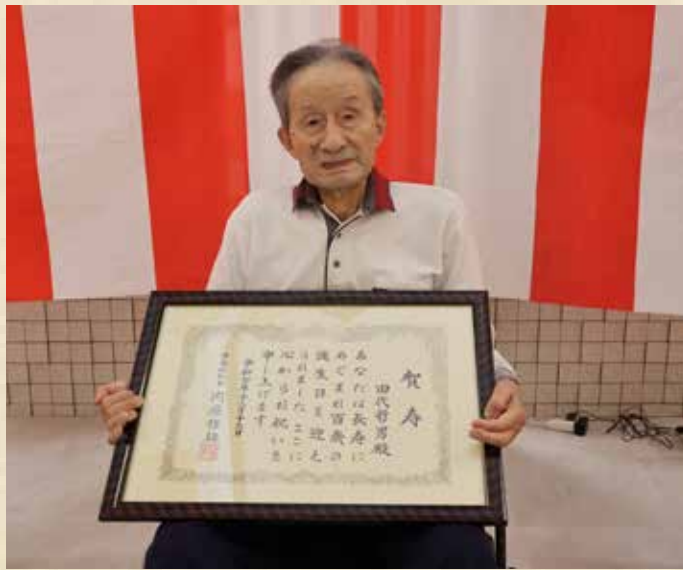 賀寿
田代哲男殿
あなたは長寿に
めぐまれ百歳の
誕生日を迎え
られました ここに
心からお祝いを
申し上げます